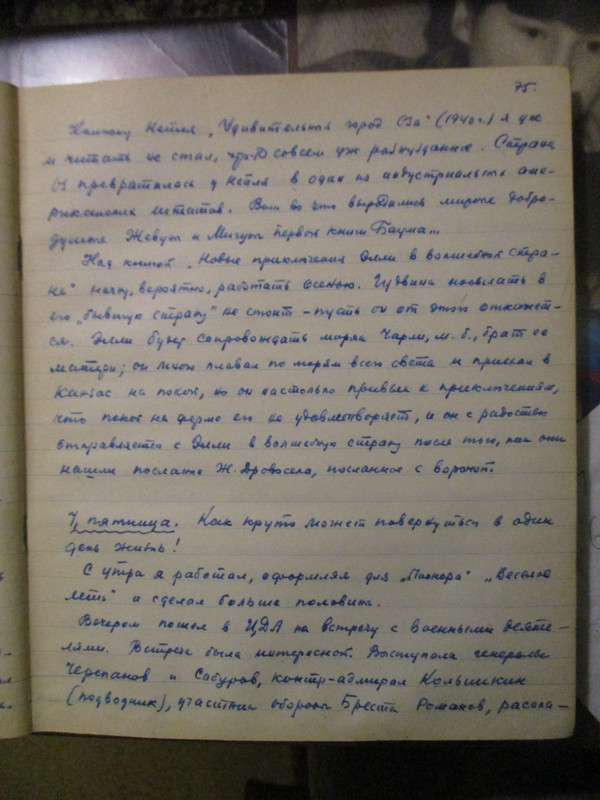 75.
Книжку Нетля „Удивительный город Оза" (1940 г.) я уж
и читать не стал, что-то совсем уж разнузданное. Страна
Оз превратилась у Нетля в один из индустриальных аме-
риканских штатов. Вот во что выродились мирные добро-
душные Жевуны и Мигуны первой книги Баума...
Над книгой „Новые приключения Элли в волшебной стра-
не" начну, вероятно, работать осенью. Гудвина посылать в
его „бывшую страну" не стоит – пусть он от этого откажет-
ся. Элли будет сопровождать моряк Чарли, м. б., брат ее
матери; он много плавал по морям всего света и приехал в
Канзас на покой, но он настолько привык к приключениям,
что покой на ферме его не удовлетворяет, и он с радостью
отправляется с Элли в волшебную страну после того, как они
нашли послание Ж. Дровосека, посланное с вороной.
7, пятница. Как круто может повернуться в один
день жизнь!
С утра я работал, оформляя для „Пионера" „Веселую
и сделал больше половины.
Вечером пошел в ЦДЛ на встречу с военными деяте-
лями. Встреча была интересной. Выступали генералы
Черепанов и Сабуров, контр-адмирал Колышкин
(подводник), участник обороны Бреста Романов, расска-